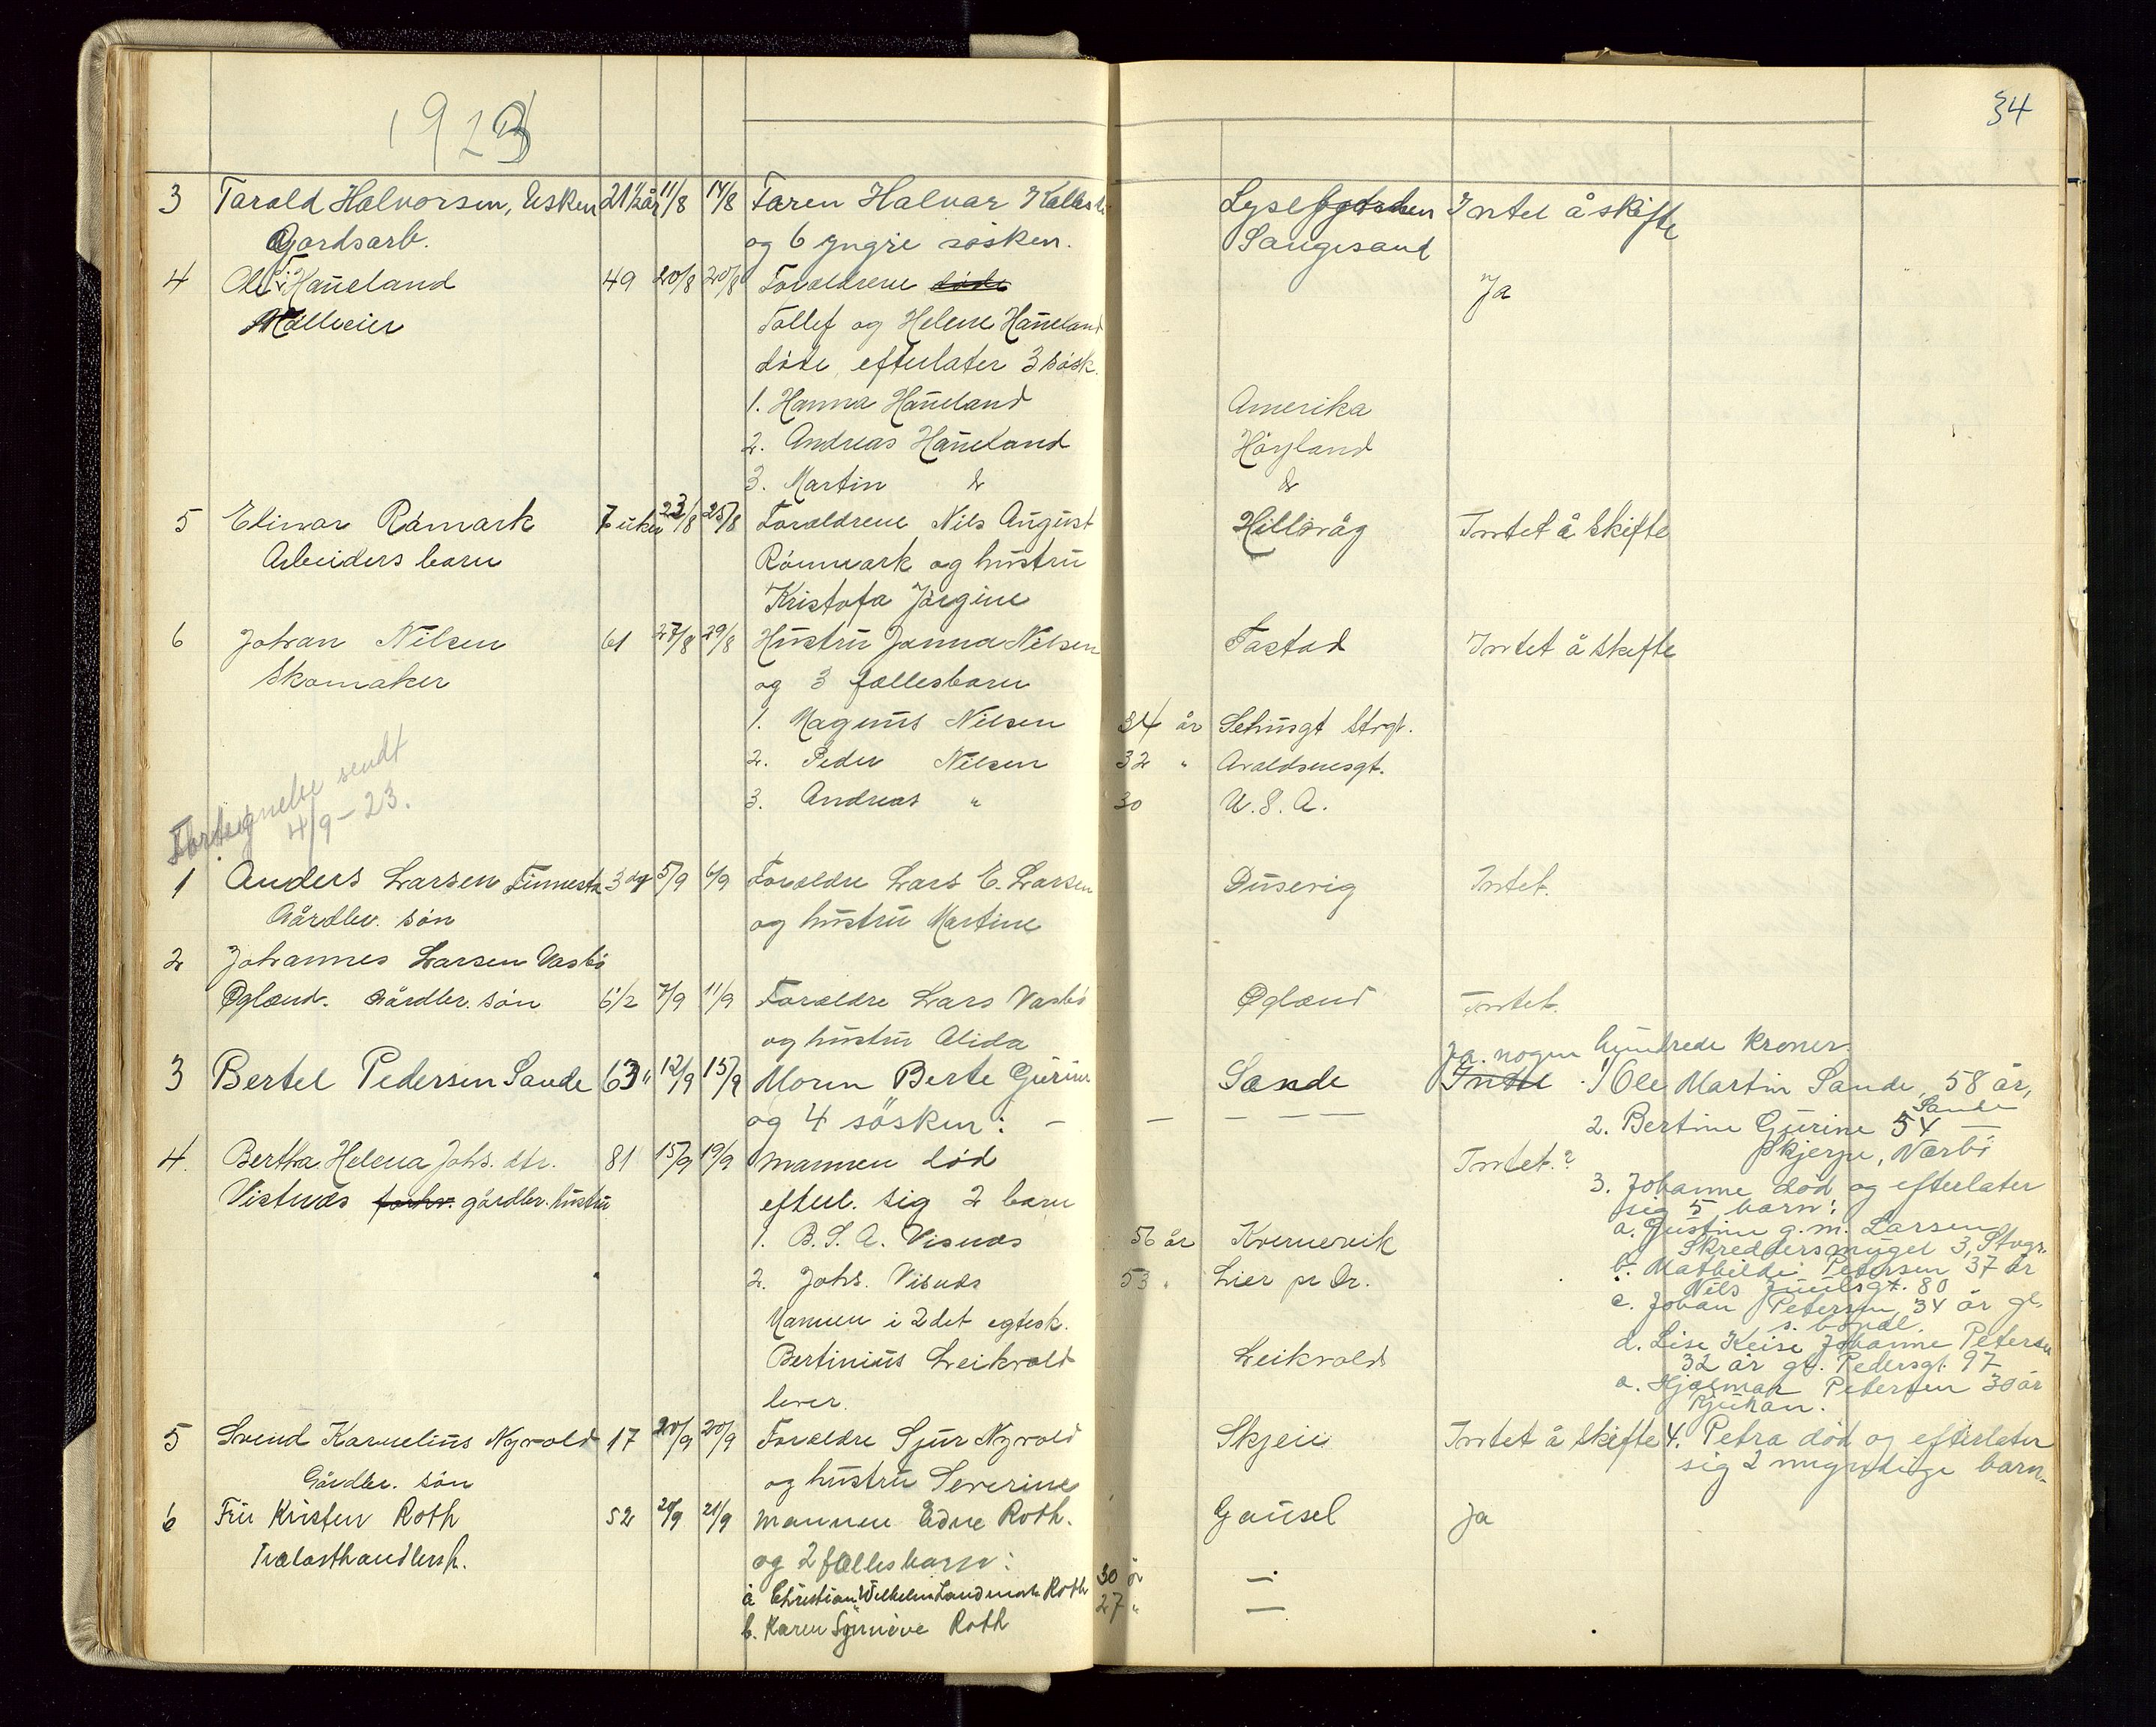 1923
34
3 Tarald Halvorsen, Eskeu 21½ år 11/8 14/8 Faren Halvar Lyse Intet å skifte
Gardsarb. og 6 yngre søsken. Sangesand
4 Ole T. Haneland 49 20/8 20/8 Forældrene døde Ja
Mølleeier Tallef og Helene Haneland
døde, efterlater 3 søsk.
1. Hanna Haneland Amerika
2. Andreas Haneland Høyland
3. Martin do do
5 Elimar Römark 7 uker 23/8 25/8 Forældrene Nils August Hillevåg Intet å skifte
Arbeiders barn Rönmark og hustru
Kristofa Jørgine
6 Johan Nilsen 61 27/8 29/8 Hustru Janna Nilsen Tastad Intet å skifte
Skomaker og 3 fællesbarn
1. Magnus Nilsen 34 år Sehusgt Strgt.
2. Peder Nilsen 32 " Avaldsnesgt.
3. Andreas " 30 U.S.A.
Fortegnelse sendt
4/9-23.
1 Anders Larsen Finnesta 3 dg 5/9 6/9 Forældre Lars E. Larsen Dusevig Intet.
Gårdbr. søn og hustru Martine
2 Johannes Larsen Vasbø
Øgland. Gårdbr. søn 6½ 7/9 11/9 Forældre Lars Vasbø Øgland Intet.
og hustru Alida
Ja. nogen hundrede kroner.
3 Bertel Pedersen Sande 63 " 12/9 15/9 Moren Berte Gurine Sande Intet 1) Ole Martin Sande, 58 år,
og 4 søsken: — — — — — 2. Bertine Gurine Sande 54 —
Skjerpe, Nærbø
4. Bertha Helena Johs. dtr. 81 15/9 19/9 Mannen død Intet.?
3. Johanne død og efterlater
Vistnæs forhv. gårdbr. hustru efterl. sig 2 barn sig 5 barn:
a. Gustine g.m. Larsen
1. B. S. A. Visnæs 56 år Kvernevik Skreddersmuget 3, Stvgr.
b. Mathilde Petersen 37 år
2. Johs. Visnæs 53 " Lier pr Dr. Nils Juulsgt. 80
c. Johan Petersen, 34 år gl.
Mannen i 2det egtesk. s. bopæl.
d. Lise Keise Johanne Petersen
Bertinius Leikvold Leikvold 32 år gl. Pedersgt. 97
e. Hjalmar Petersen 30 år
lever. Rjukan.
5 Svend Karnelius Nyvold 17 20/9 20/9 Forældre Sjur Nyvold Skjeie Intet å skifte 4. Petra død og efterlater
Gårdbr. søn og hustru Severine sig 2 myndige barn.
6 Fru Kristen Roth 52 20/9 21/9 Mannen Edne Roth. Gausel Ja
Trælasthandlersh. og 2 fællesbarn:
a Christian Wilhelm Landmark Roth 30 år —
b. Karen Synnève Roth 27 " —